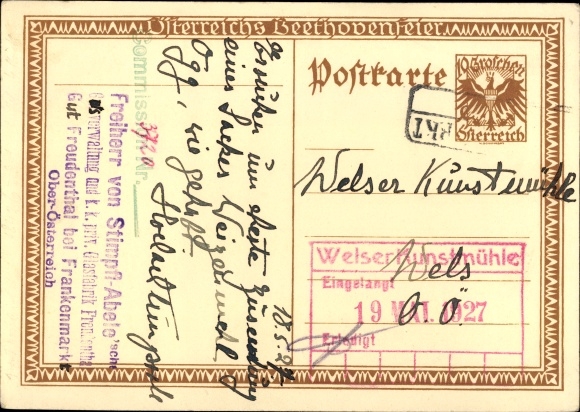 Österreichs Beethovenfeier
Postkarte
10 Groschen
Österreich
RKT
Welser Kunstmühle
Wels
O.Ö.
Welser Kunstmühle
Eingelangt
19 MAI 1927
Erledigt
18.5.27.
ersuchen um eheste Zusendung
eines Sackes Weizenmehl
Ogg, wie gehabt
Hochachtungsvoll
Commissions Nr.
3720
Freiherr von Stimpfl-Abele'sche
Gutsverwaltung und k. k. priv. Glasfabrik Freudenthal
Gut Freudenthal bei Frankenmarkt
Ober-Österreich